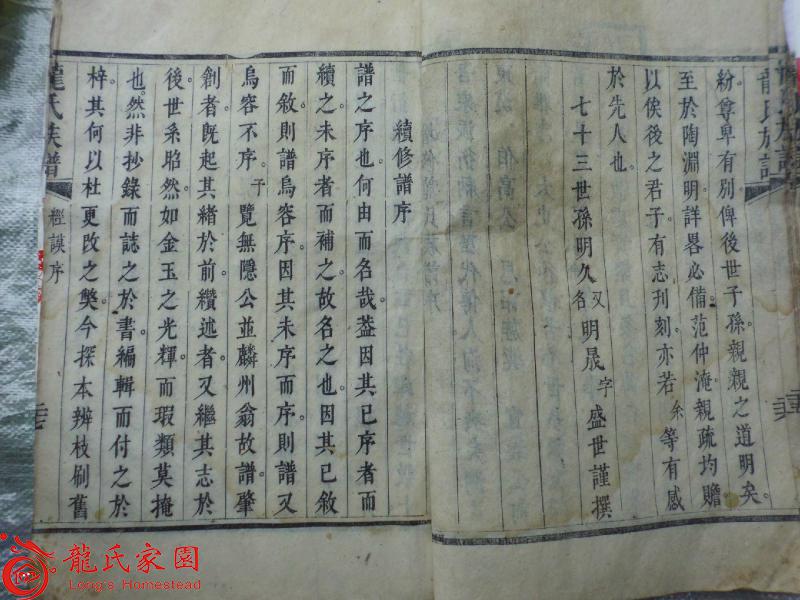 龍氏族譜
紛尊卑有別俾後世子孫親親之道明矣。
至於陶淵明詳畧必備范仲淹親疏均贍
以俟後之君子有志刊刻亦若㕘等有感
於先人也
七十三世孫明久又名明晟字盛世謹撰
續修譜序
譜之序也何由而名哉葢因其已序者而
續之未序者而補之故名之也因其已敘
而敘則譜烏容序因其未序而序則譜又
烏容不序。于覽無隱公並麟州翁故譜肇
創者旣起其緒於前纘述者又繼其志於
後世系昭然如金玉之光輝而瑕類莫掩
也。然非抄錄而誌之於書編輯而付之於
梓其何以杜更改之獘今探本辨枝刷舊
龍氏族譜
經謨序
龍氏家園
Long's Homestead